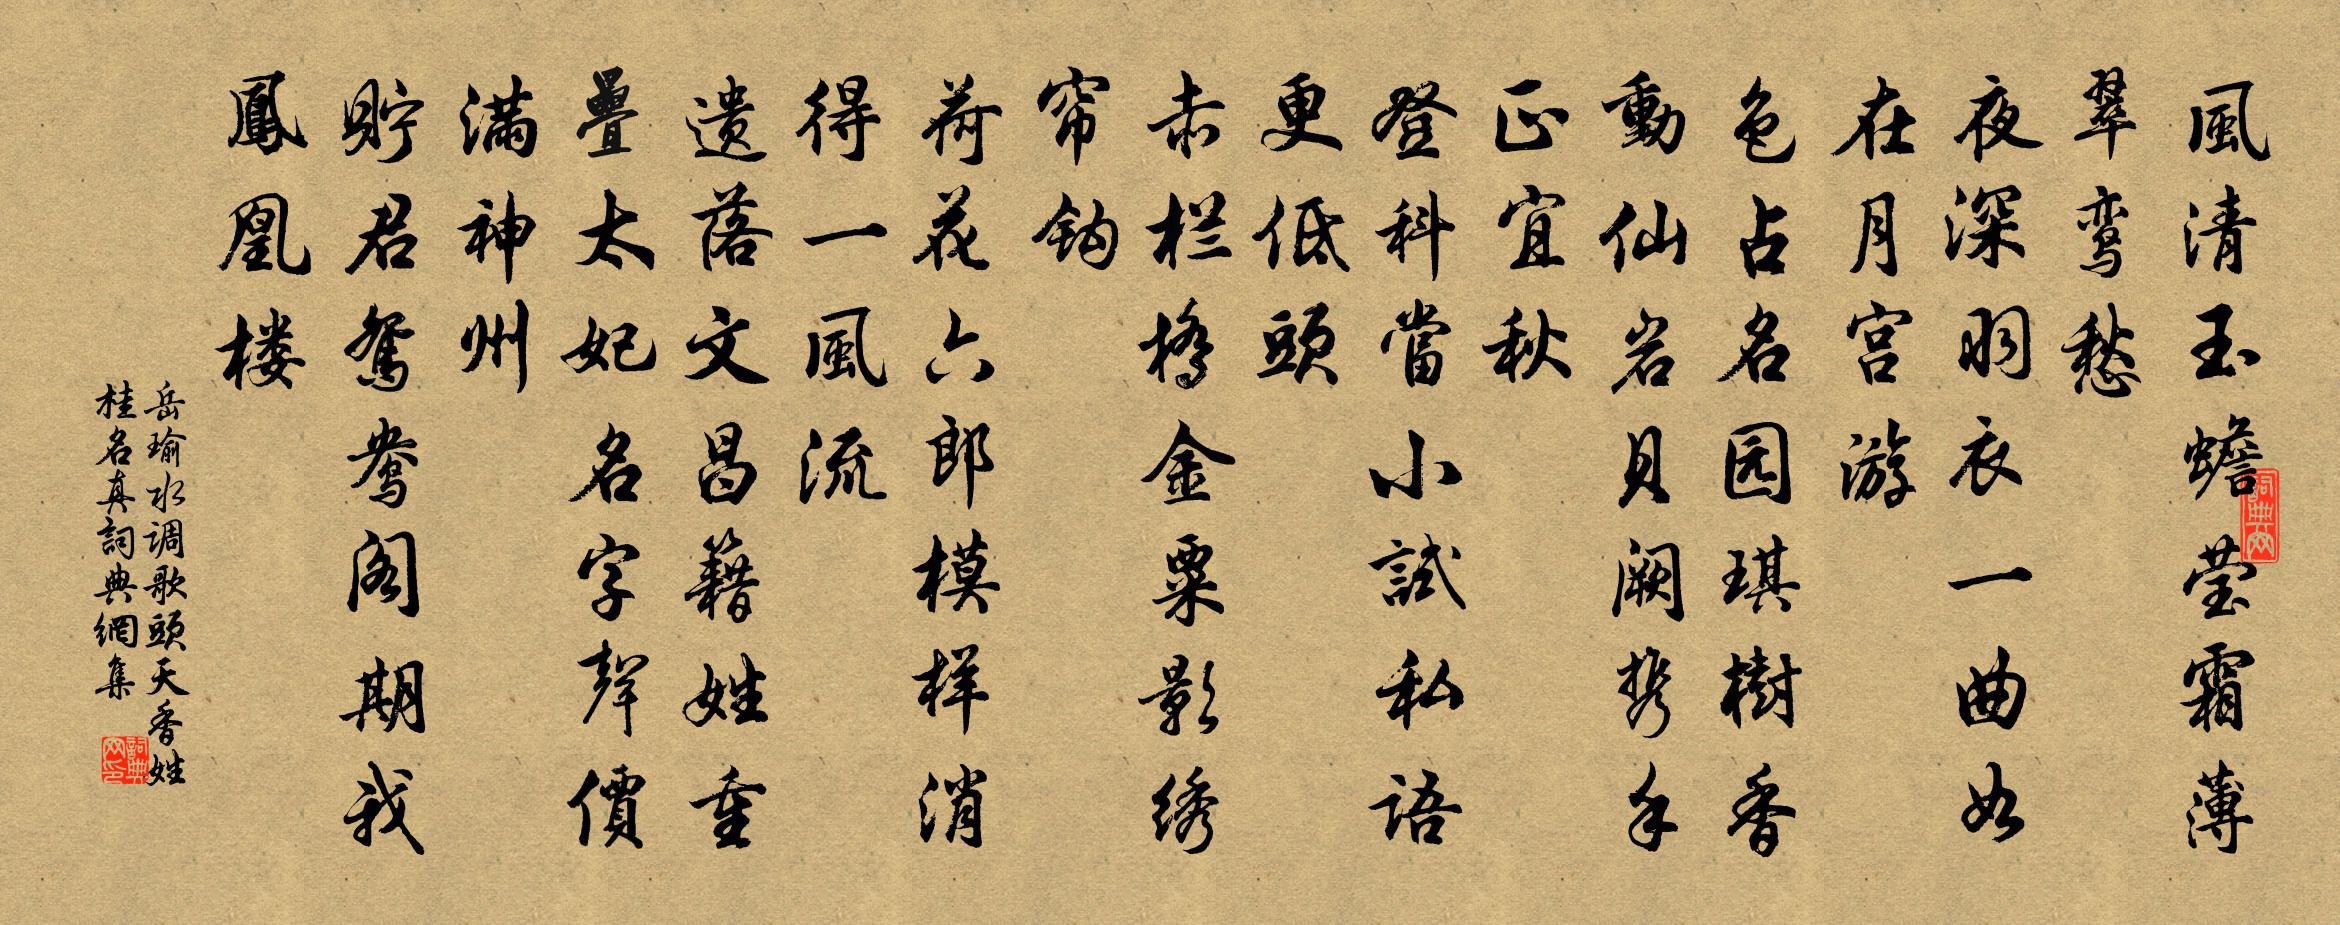 風清玉蟾莹霜薄
翠鸾愁
夜深羽衣一曲如
在月宫游
色占名园琪樹香
動仙岩贝阙携手
正宜秋
登科當小試私语
更低頭
赤栏橋金粟影绣
帘钩
荷花六郎模样消
得一風流
遗落文昌籍姓重
疊太妃名字聲價
满神州
贮君鸳鸯阁期我
鳳凰楼
岳瑜水调歌頭天香姓
桂名真詞典網集
詞典网
詞典网印